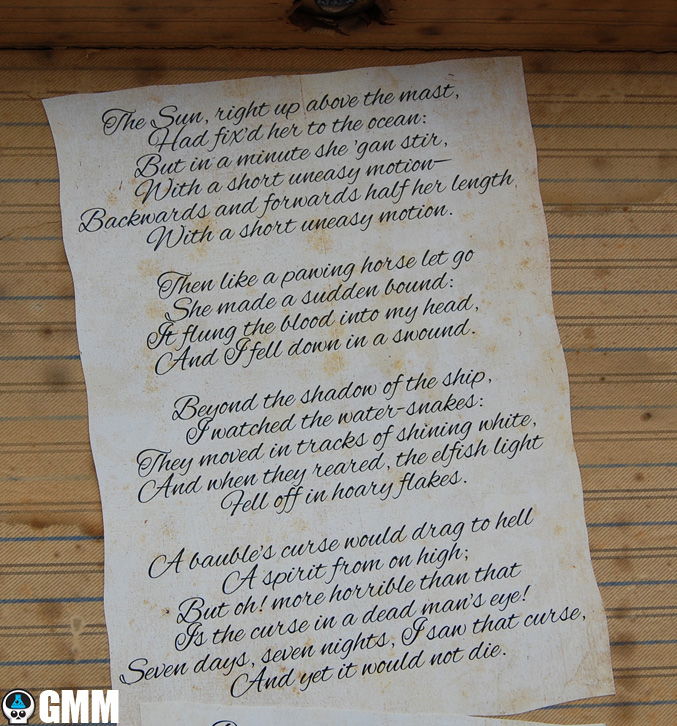 The Sun, right up above the mast,
Had fix'd her to the ocean:
But in a minute she 'gan stir,
With a short uneasy motion—
Backwards and forwards half her length
With a short uneasy motion.
Then like a pawing horse let go
She made a sudden bound:
It flung the blood into my head,
And I fell down in a swound.
Beyond the shadow of the ship,
I watched the water-snakes:
They moved in tracks of shining white,
And when they reared, the elfish light
Fell off in hoary flakes.
A bauble's curse would drag to hell
A spirit from on high;
But oh! more horrible than that
Is the curse in a dead man's eye!
Seven days, seven nights, I saw that curse,
And yet it would not die.
GMM